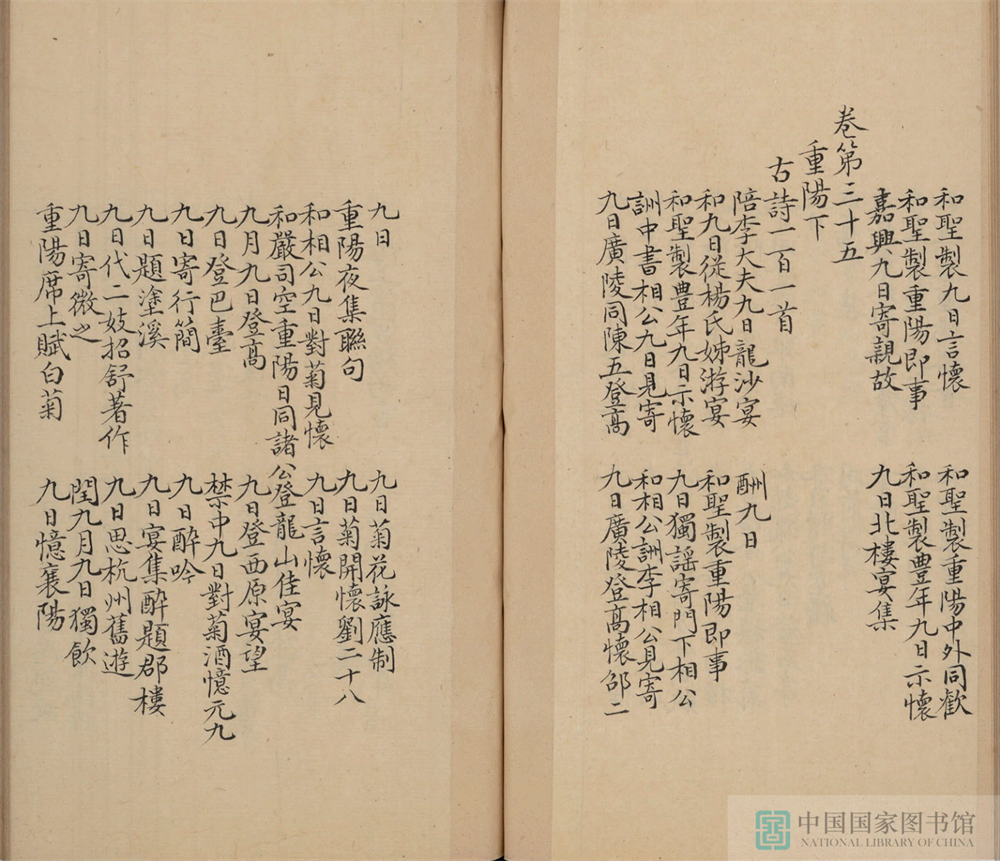 和聖製九日言懷　和聖製重陽中外同歡
和聖製重陽即事　和聖製豊年九日示懷
嘉興九日寄親故　九日北樓宴集
卷第三十五
重陽下
古詩一百一首
陪李大夫九日龍沙宴　酬九日
和九日從楊氏姊游宴　和聖製重陽即事
和聖製豊年九日示懷　九日獨謡寄門下相公
訓中書相公九日見寄　和相公訓李相公見寄
九日廣陵同陳五登髙　九日廣陵登髙懷邵二
九日　九日菊花詠應制
重陽夜集聯句　九日菊開懷劉二十八
和相公九日對菊見懷　九日言懷
和嚴司空重陽日同諸公登龍山佳宴
九月九日登髙　九日登西原宴望
九日登巴臺　禁中九日對菊酒憶元九
九日寄行簡　九日醉吟
九日題塗溪　九日宴集醉題郡樓
九日代二妓招舒著作　九日思杭州舊遊
九日寄微之　閏九月九日獨飲
重陽席上賦白菊　九日憶襄陽
中国国家图书馆
NATIONAL LIBRARY OF CHINA